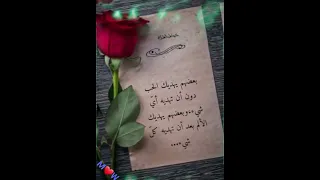 بعضهم يهديك الحب
دون أن تهديه أيّ
شيء..وبعضهم يهديك
الألم بعد أن تهديه كلّ
شيء....
M❤W